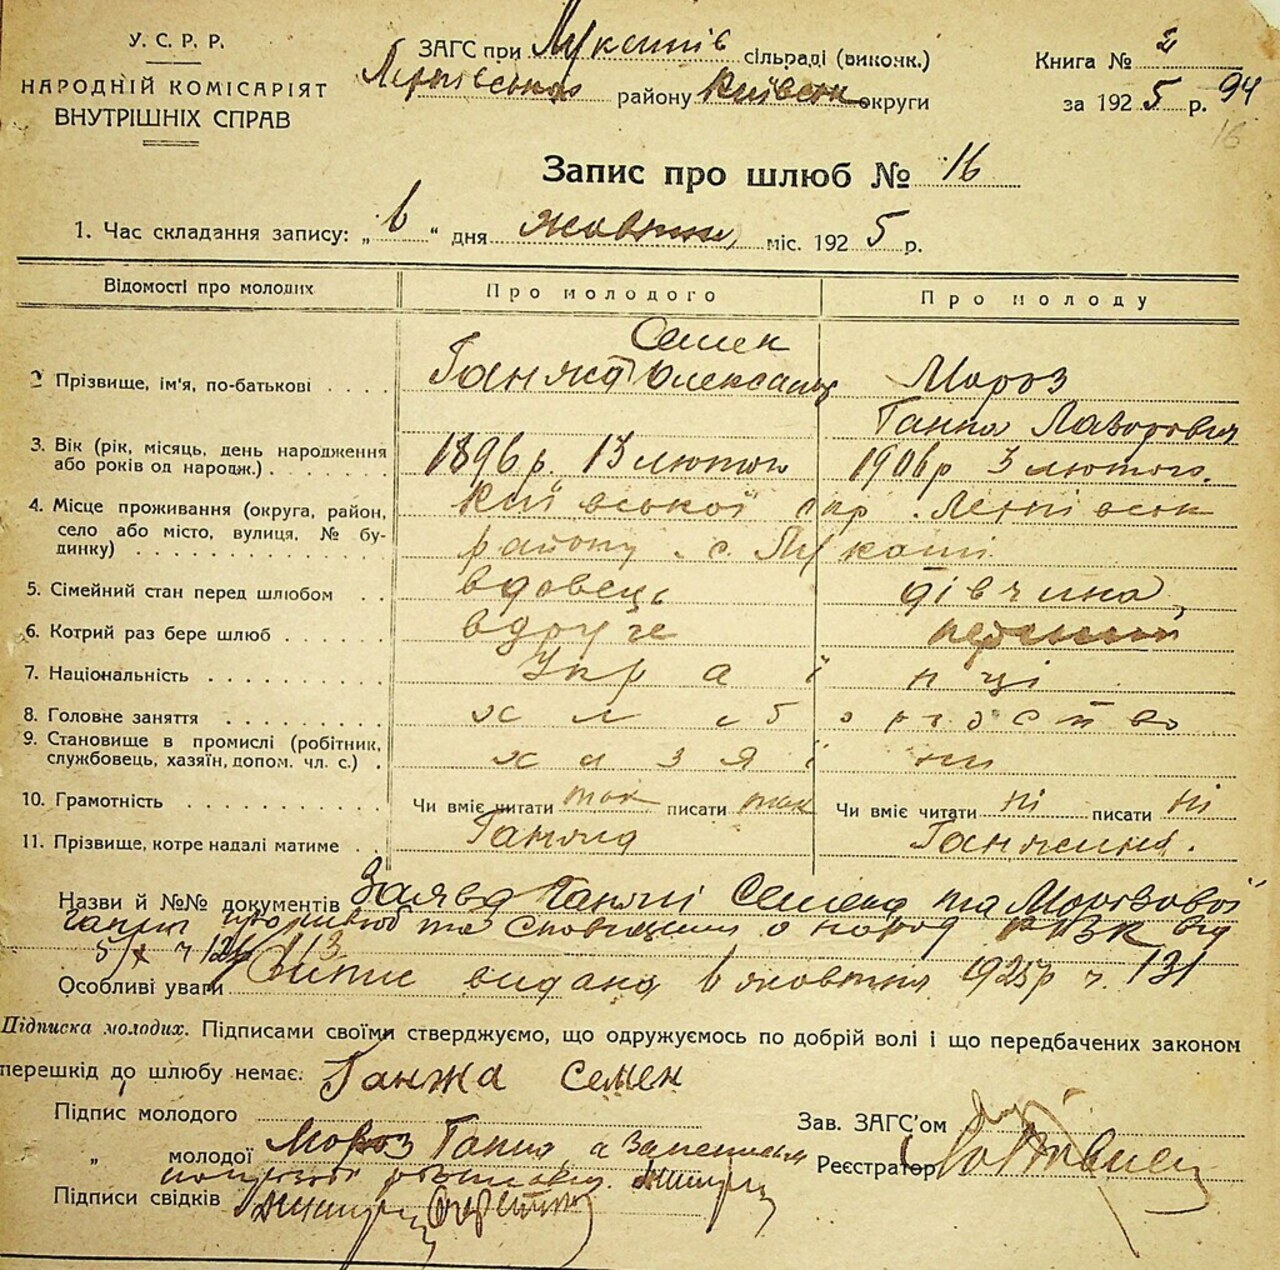 У. С. Р. Р.
НАРОДНІЙ КОМІСАРІЯТ
ВНУТРІШНІХ СПРАВ
ЗАГС при сільраді (викочк.)
району Київськ округи
Книга № 2
за 1925 р. 94
16
Запис про шлюб № 16
1. Час складання запису: „6“ дня жовтня міс. 1925 р.
Відомості про молодих
Про молодого
Про молоду
2 Прізвище, ім'я, по-батькові . . . .
Семен
Ганжа Олександр
Мороз
Ганна
3. Вік (рік, місяць, день народження
або років од народж.) . . . . . . .
1896 р. 13 лютого
1906 р 3 лютого.
4. Місце проживання (округа, район,
село або місто, вулиця, № бу-
динку) . . . . . . . . . . . . .
Київської окр.
району. с.
5. Сімейний стан перед шлюбом . .
вдовець
дівчина,
6. Котрий раз бере шлюб . . . . . .
вдруге
7. Національність . . . . . . . . . .
Українці
8. Головне заняття . . . . . . . . .
хліборобство
9. Становище в промислі (робітник,
службовець, хазяїн, допом. чл. с.) .
хазяїни
10. Грамотність . . . . . . . . . . .
Чи вміє читати так писати так
Чи вміє читати ні писати ні
11. Прізвище, котре надалі матиме . .
Ганжа
Назви й №№ документів Заява Ганжі Семена та Морозової
Ганни про шлюб та о народ РВК від
Особливі уваги Випис видана 6 жовтня 1925 р ч. 131
Підписка молодих. Підписами своїми стверджуємо, що одружуємось по добрій волі і що передбачених законом
перешкід до шлюбу немає.
Ганжа Семен
Підпис молодого
„ молодої Мороз Ганна, а за неписьм
Підписи свідків
Зав. ЗАГС'ом
Реєстратор